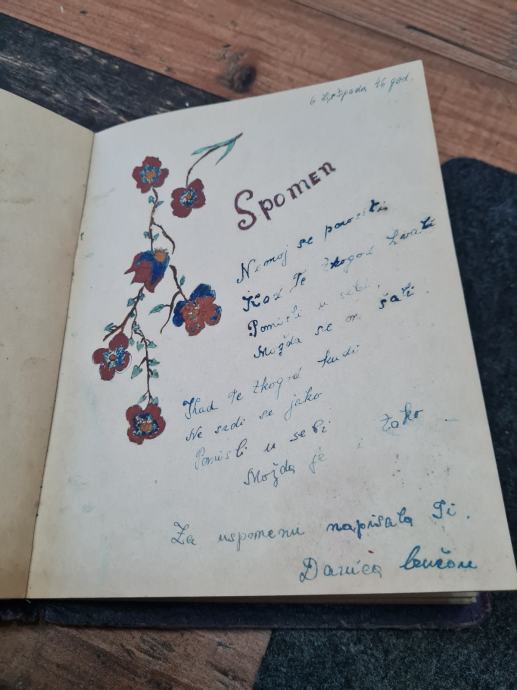 6 Listopada 46 god.
Spomen
Nemoj se ponositi
Kad te tkogod hvali
Pomisli u sebi
Možda se on šali.
Kad te tkogod kudi
Ne srdi se jako
Pomisli u sebi
Možda je i tako
Za uspomenu napisala Ti.
Danica